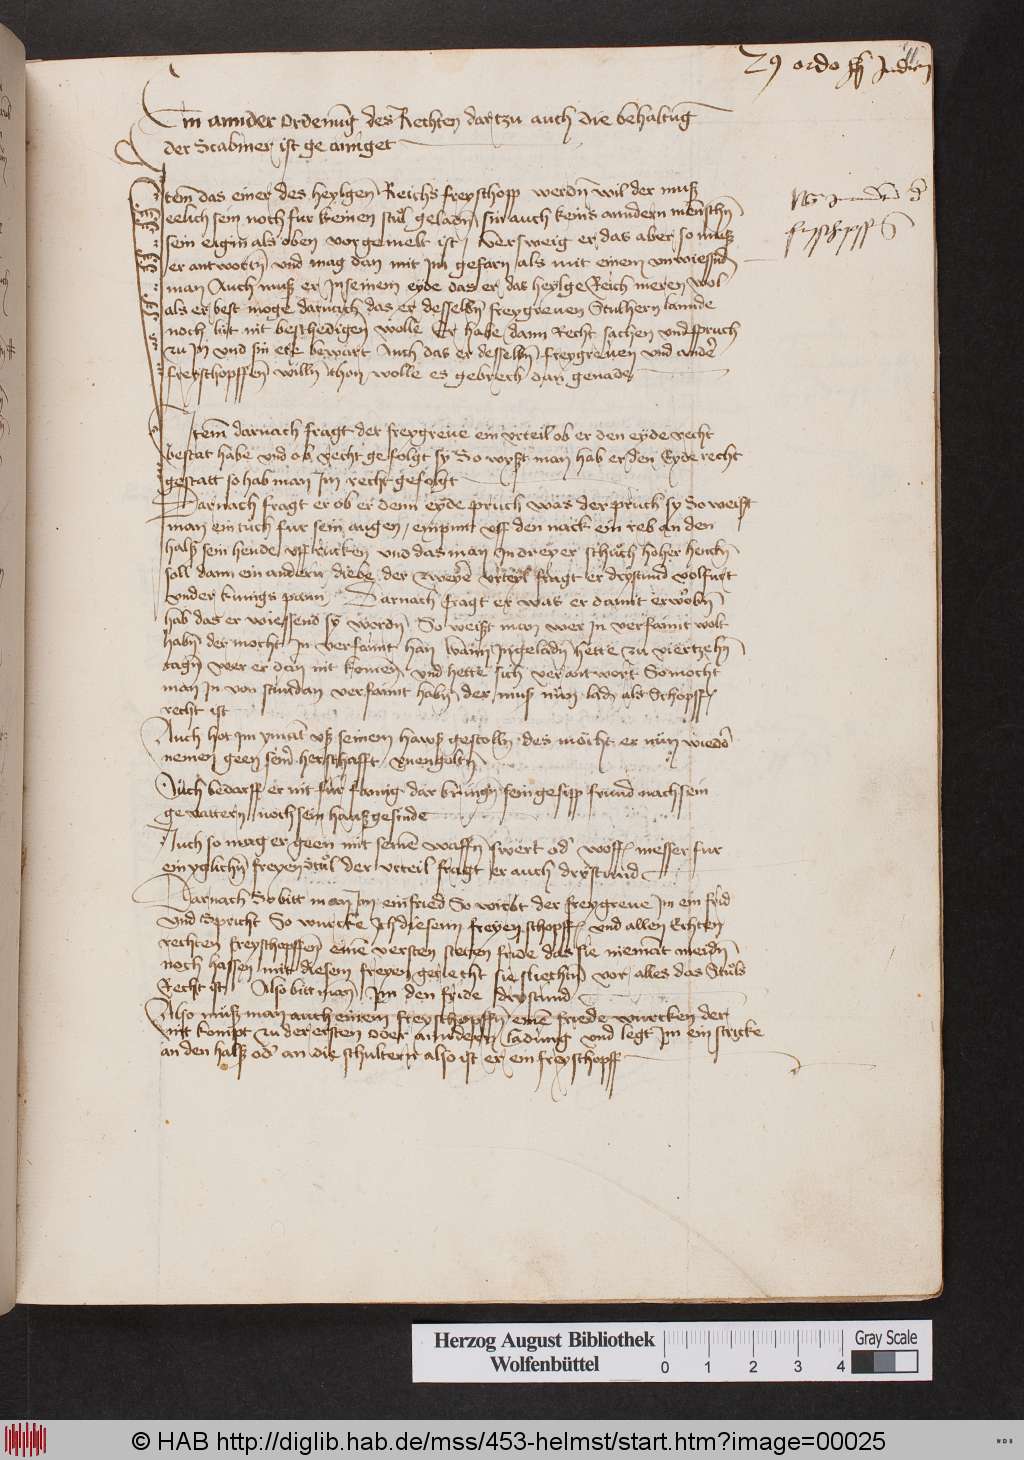 Ein annder Ordenung des Rechten dartzu auch die behaltung
der Scabiner ist ge anniget
Item das einer des heylgen Reichs freyschopp werdn wil der muß
eelich sein noch fur keinen stul geladn sin auch keins anndern menschn
sein eigin als oben vorgemelt ist / Versweig er das aber so muß
er antwortn vnd mag dan mit im gefarn als mit einem vnwiessndn
man Auch muß er In seinem eyde das er das heylge Reich meren wol
als er best moge darnach das er desselbn freygreuen Stulhern lannde
noch lut nit beschedigen wolle Er habe dann Recht sachen vnd spruch
zu In vnd sin ere bewart Auch das er desselbn freygreuen vnd ander
freyschopffen willn thon wolle es gebrech dan genade
Item darnach fragt der freygreue ein vrteil ob er den eyde recht
bestat habe vnd ob recht gefolgt sy So wyßt man hab er den Eyde recht
gestatt so hab man Im recht gefolgt
Darnach fragt er ob er denn eyde pruch was der pruch sy So weißt
man ein tuch fur sein augen / ein punt vff den nack ein reb an den
halß sein hende vff rucken vnd das man In dreyer schuch hoher henckn
soll dann ein andern diebe der zweyer vrteyl fragt er drystund volfurt
vnder kunigs pann / Darnach fragt er was er damit erwobn
hab das er wiessend sy wordn So weißt man wer In verfaimt wolt
habn der mocht In verfaimt han wann Ingeladn hette zu viertzehn
tagn wer er dan nit komen vnd hette sich verantwort So mocht
man In von stund an verfaimt habn der muß nun ladn als Schopffn
recht ist
Auch hot im ymant vß seinem hawß gestolln des mocht er nun wieder
nemen geen seiner herschafft vnengoltn
Auch bedarff er nit fur fromig dar bringn sein gesipp frund nach sein
gevattern noch sein haußgesinde
Auch so mag er geen mit seinen waffn swert oder woffn messer fur
ein yglichn freyen Stul der vrteil fragt er auch drystund
Darnach So bitt man Im ein fried So wirbt der freygreue Im ein frid
vnd Spricht So wurcke Ich diesem freyen schopffn vnd allen Echten
rechten freyschopffen einen versten steten fride das sie niemant meidn
noch hassen mit diesem freyen gerecht sie sliechtn vor alles das Stuls
Recht ist Also bitt man Im den fride drystund
Also muß man auch einem freyschopffn einen friede wurcken der
nit kompt zu der ersten oder anndern ladung vnd legt Im ein stricke
an den halß oder an die schultern also ist er ein freyschopff
Herzog August Bibliothek
Wolfenbüttel
0 1 2 3 4
Gray Scale
© HAB http://diglib.hab.de/mss/453-helmst/start.htm?image=00025